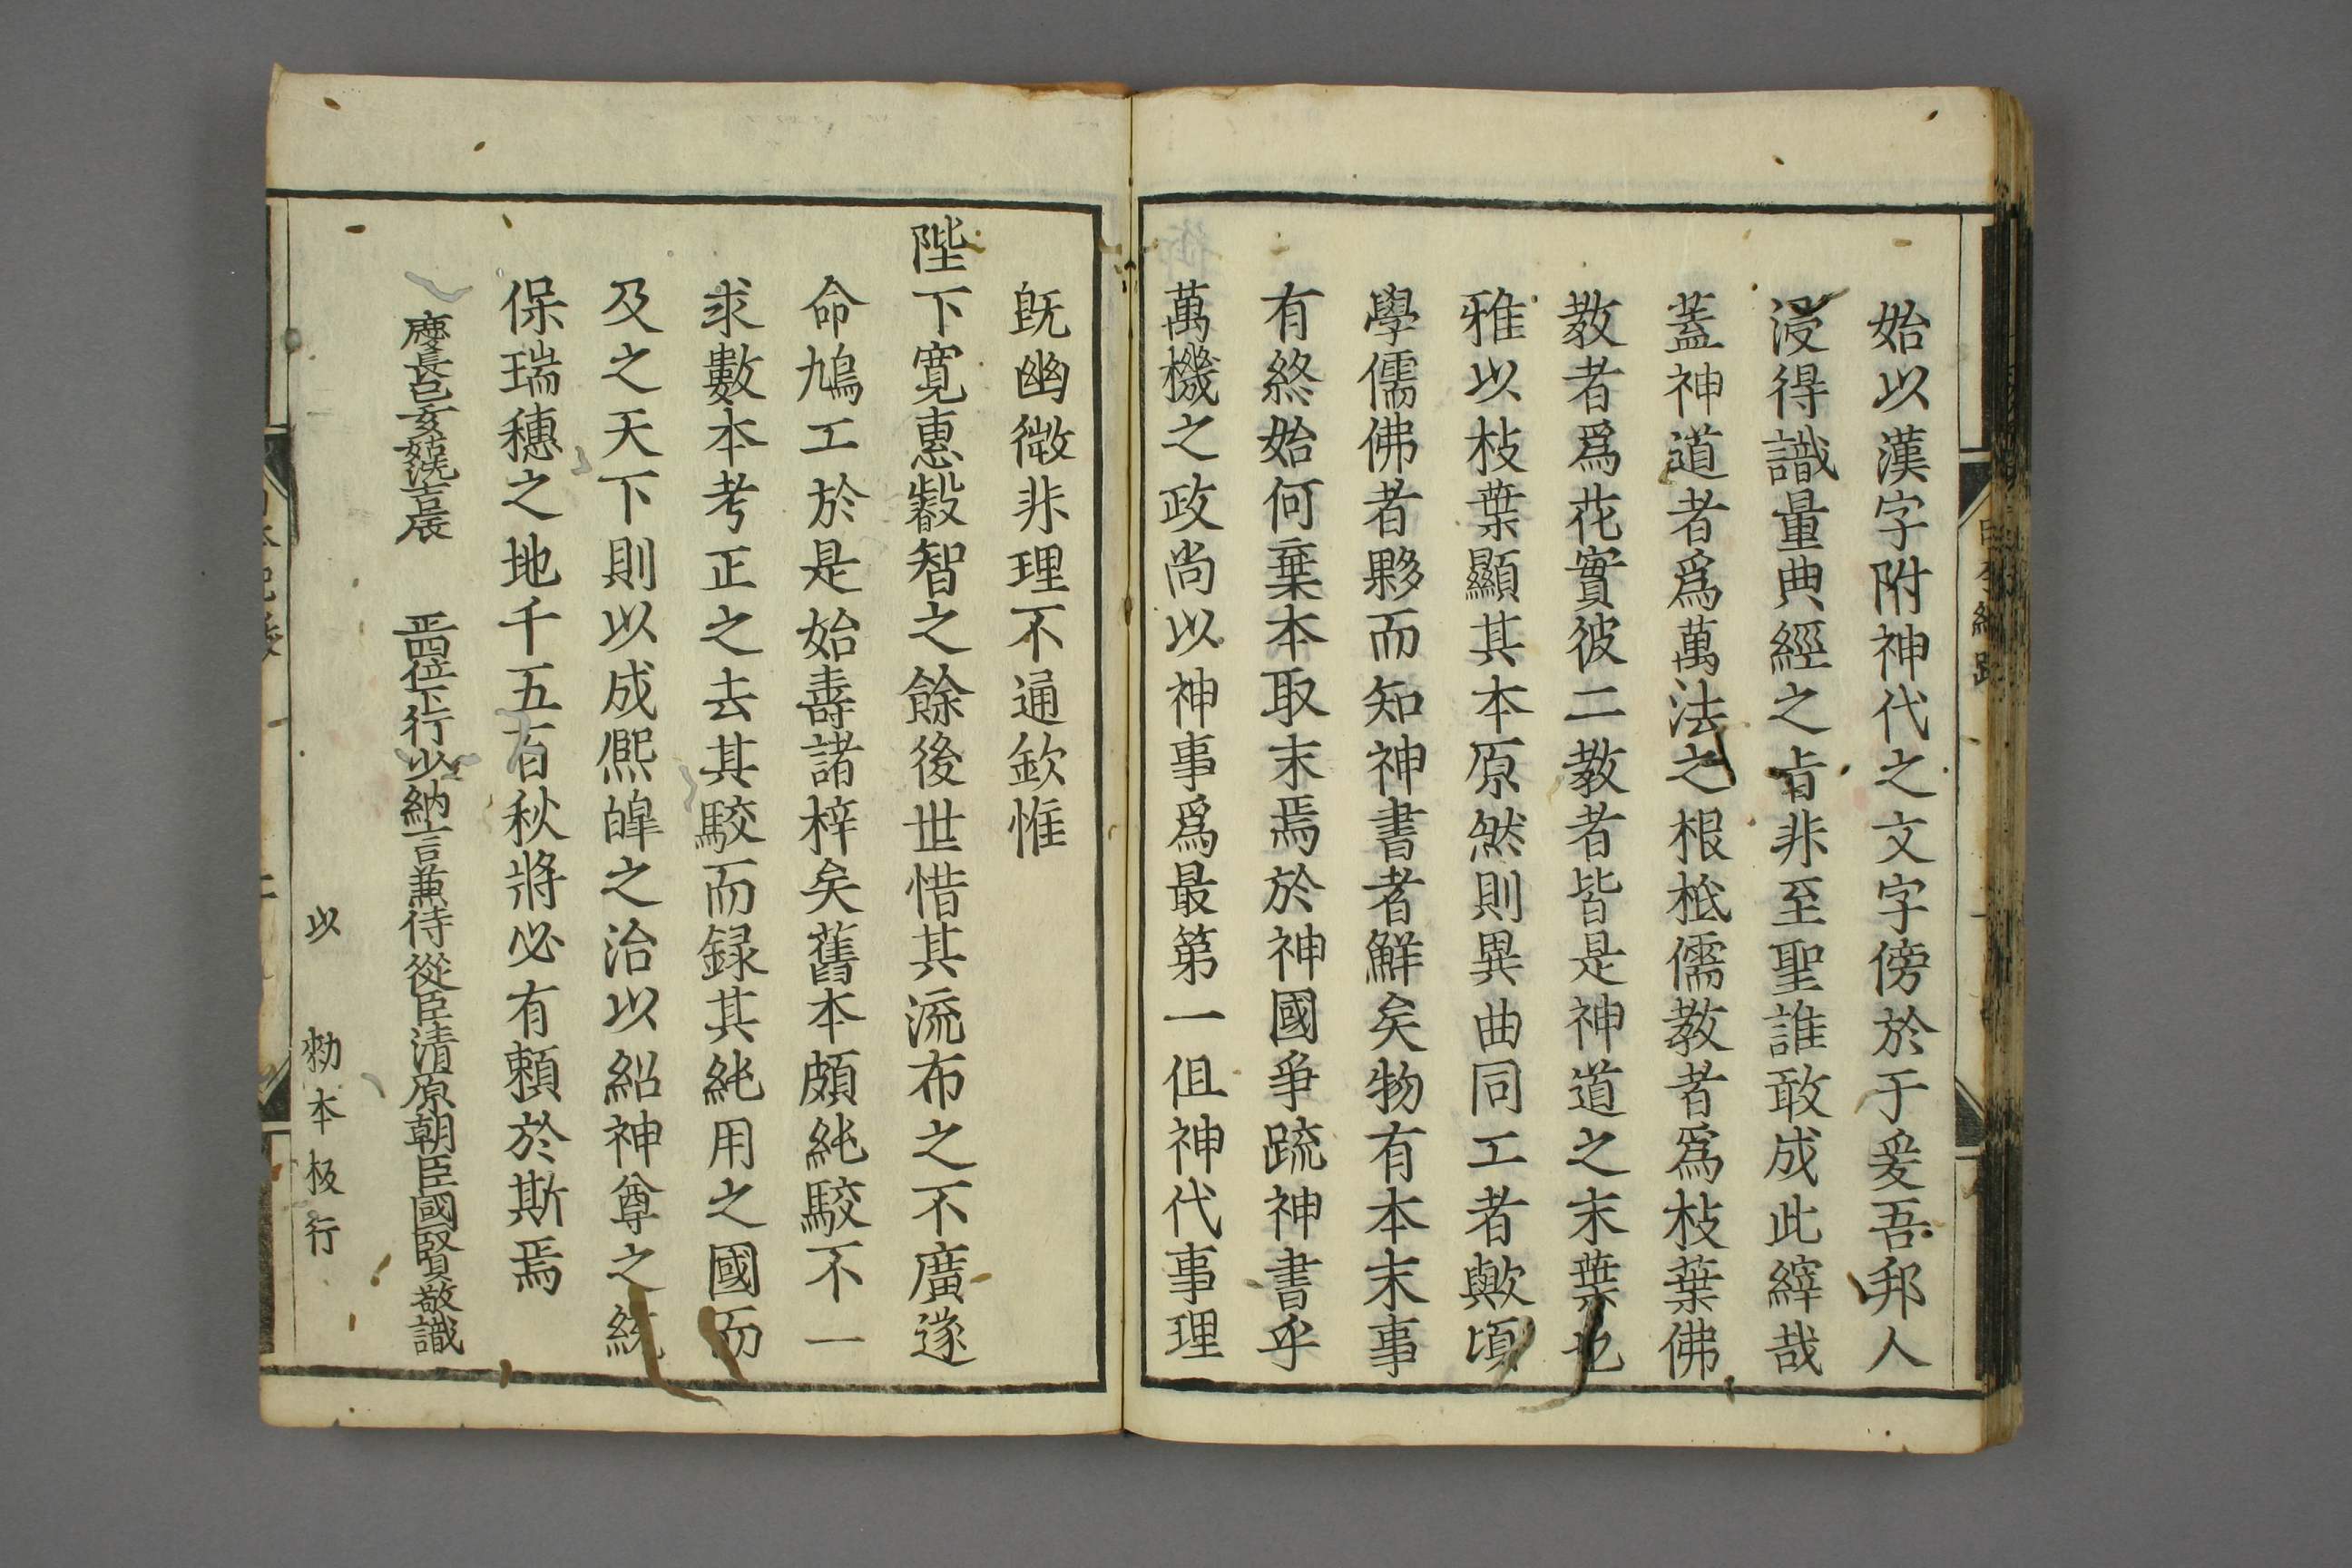 始以漢字附神代之文字傍於于爰吾邦人
浸得識量典經之旨非至聖誰敢成此縡哉
蓋神道者爲萬法之根柢儒教者爲枝葉佛
教者爲花實彼二教者皆是神道之末葉也
雅以枝葉顯其本原然則異曲同工者歟頃
學儒佛者夥而知神書者鮮矣物有本末事
有終始何棄本取末焉於神國爭䟽神書乎
萬機之政尚以神事爲最第一伹神代事理
既幽微非理不通欽惟
陛下寬惠叡智之餘後世惜其流布之不廣遂
命鳩工於是始壽諸梓矣舊本頗純駁不一
求數本考正之去其駁而録其純用之國而
及之天下則以成熈皥之治以紹神尊之統
保瑞穗之地千五百秋將必有頼於斯焉
慶長己亥姑洗吉辰　正四位下行少納言兼侍從臣清原朝臣國賢敬識
以　勑本板行